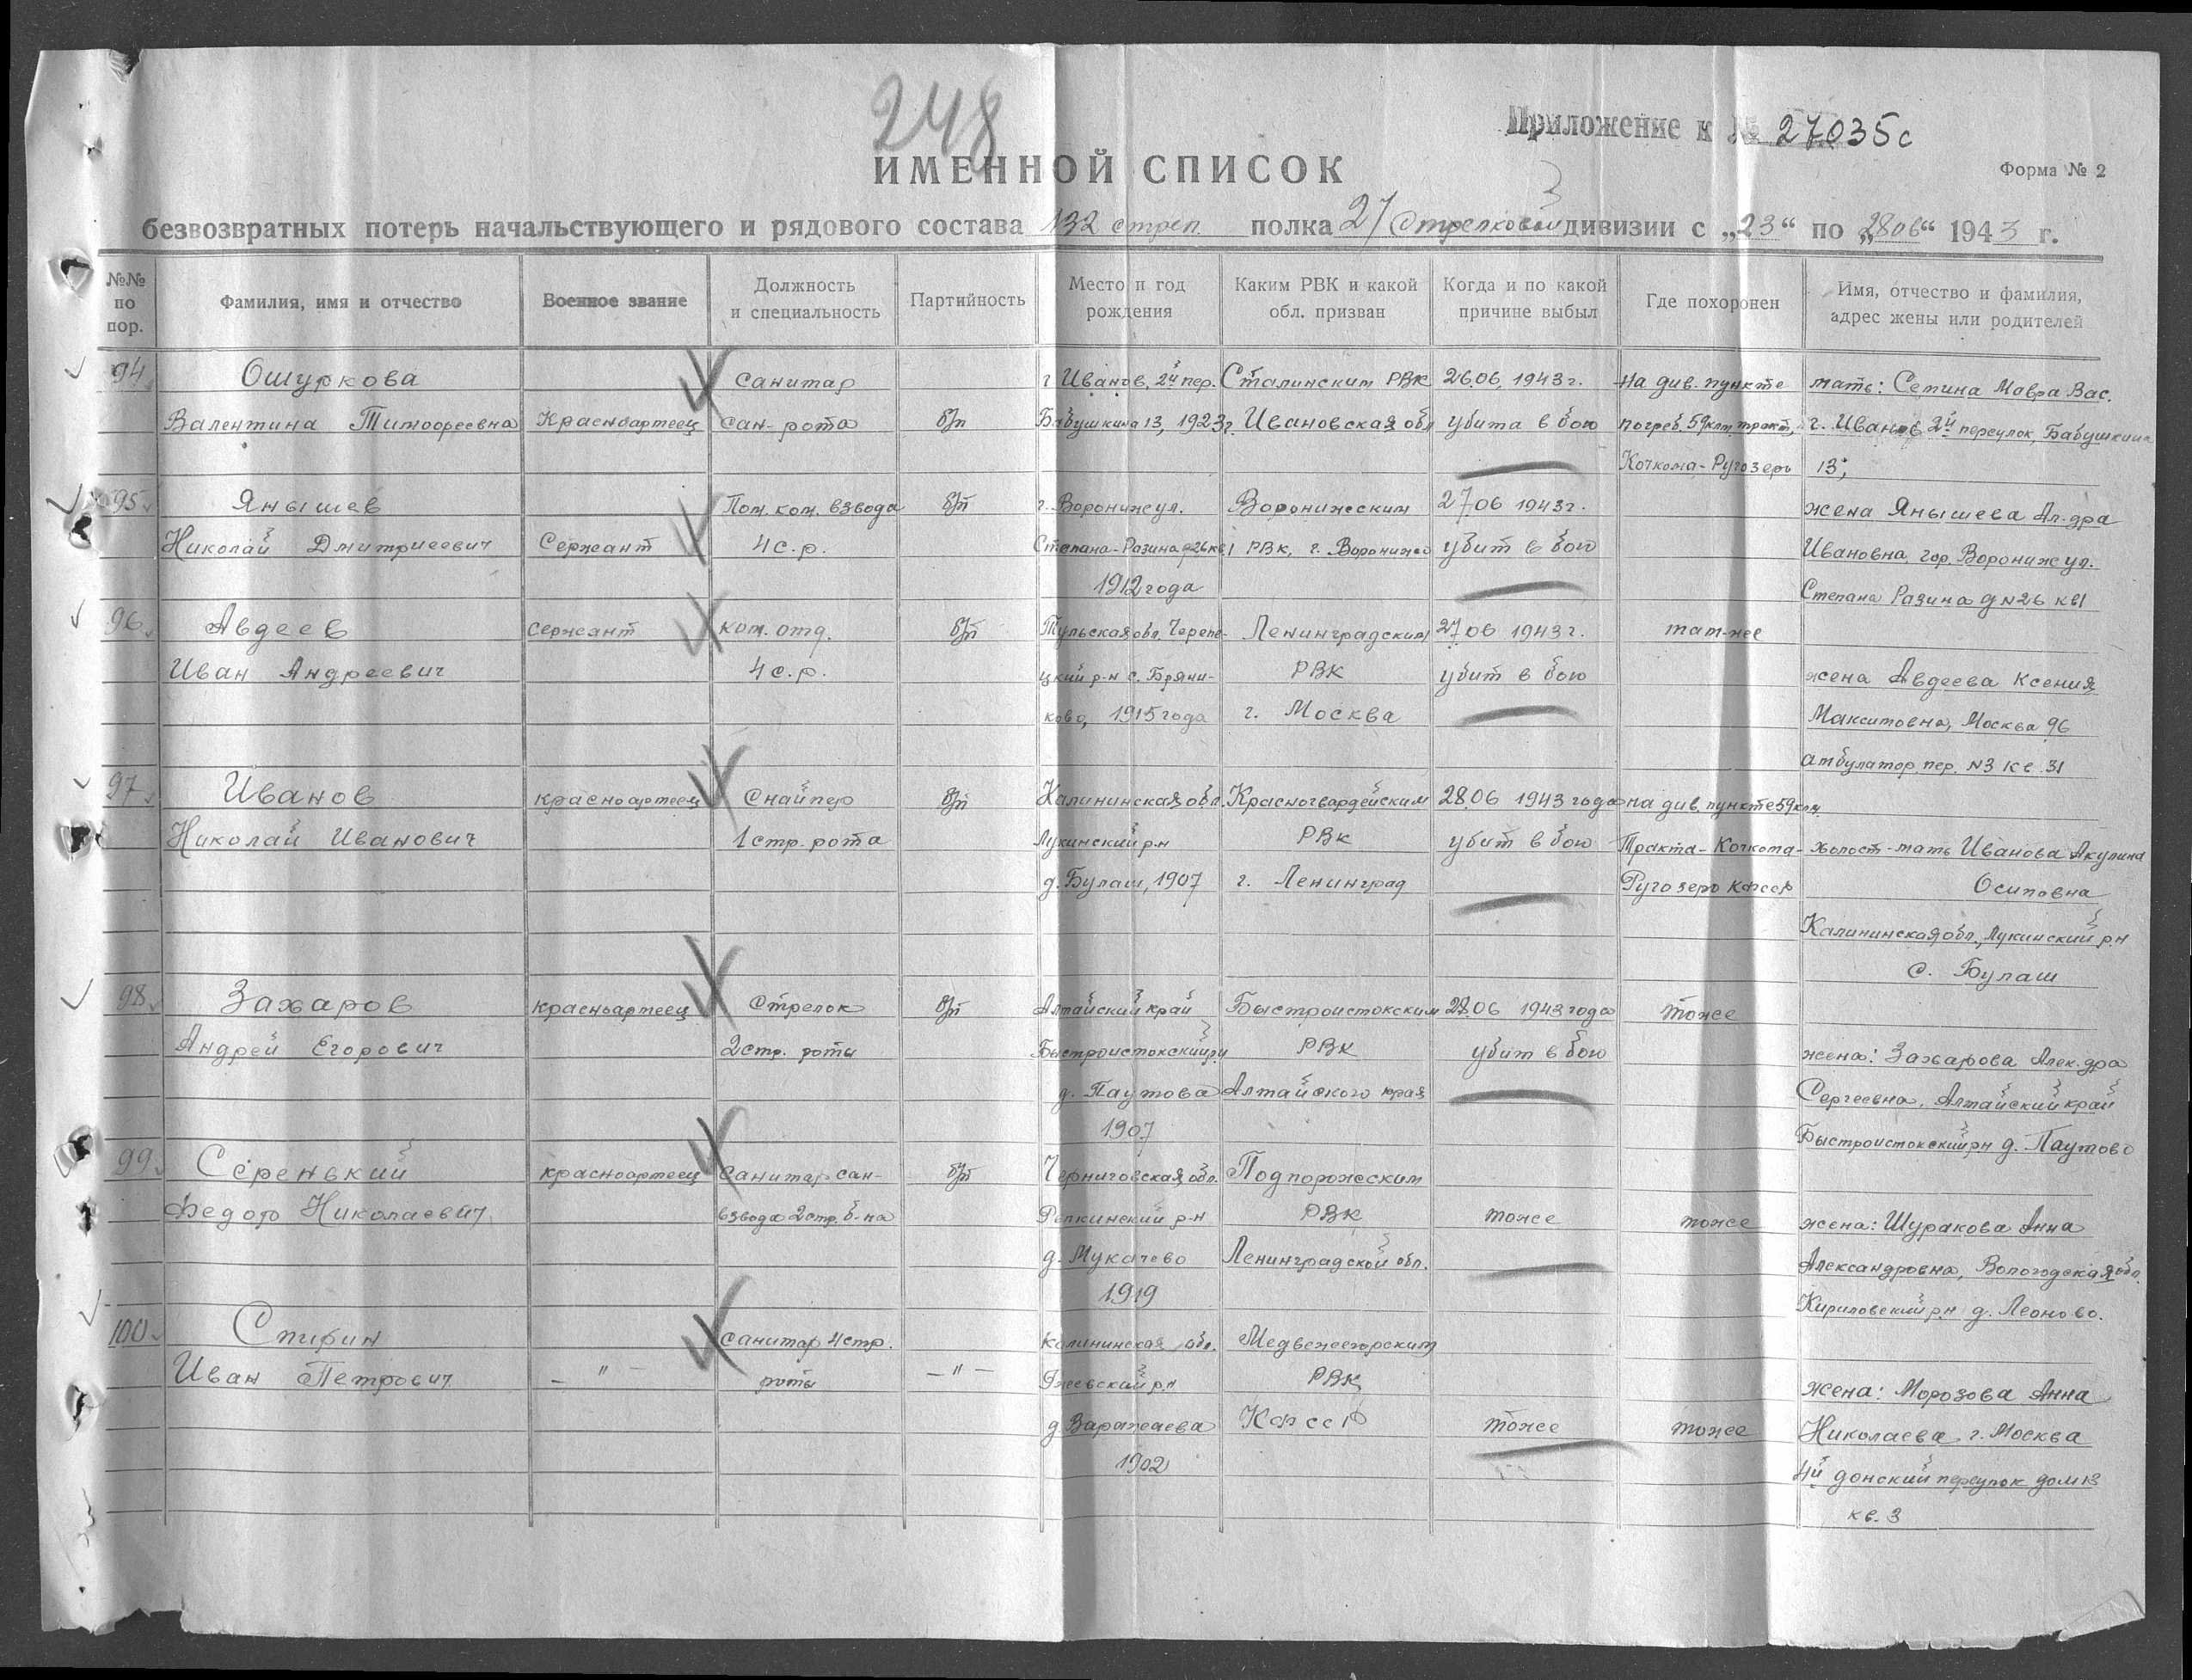 248
Приложение к № 27035с
ИМЕННОЙ СПИСОК
Форма № 2
безвозвратных потерь начальствующего и рядового состава 132 стреп. полка 27 Стрелковой дивизии с „23“ по „28 06“ 1943 г.
№№ по пор.
Фамилия, имя и отчество
Военное звание
Должность и специальность
Партийность
Место и год рождения
Каким РВК и какой обл. призван
Когда и по какой причине выбыл
Где похоронен
Имя, отчество и фамилия, адрес жены или родителей
94 Ошуркова санитар г Иванов, 2й пер. Сталинским РВК 26.06. 1943 г. На див. пункте мать: Семина Мавра Вас.
Валентина Тимофеевна Красноармеец сан-рота б/п Бабушкина 13, 1923 г. Ивановская обл убита в бою погреб. 59 клм. тракт, г. Иванов 2й переулок, Бабушкина
Кочкома-Ругозеро 13;
95 Янышев Пом. ком. взвода б/п г. Ворониж ул. Воронижским 27 06 1943 г. жена Янышева Ал-дра
Николай Дмитриевич Сержант 4 с.р. Степана-Разина д 26 кв 1 РВК, г. Воронижа убит в бою Ивановна, гор. Воронижул.
1912 года Степана Разина д N 26 кв 1
96 Авдеев сержант ком. отд. б/п Тульская обл. Черепе- Ленинградским 27 06 1943 г. там-же
Иван Андреевич 4 с.р. цкий р-н с. Бряни- РВК убит в бою жена Авдеева Ксения
ково, 1915 года г. Москва Максимовна, Москва 96
амбулатор. пер. N3 кв. 31
97 Иванов красноармеец Снайпер б/п Калининская обл. Красногвардейским 28.06 1943 года на див. пункте 59 клм
Николай Иванович 1 стр. рота Лукинский р-н РВК убит в бою Тракта-Кочкома- холост-мать Иванова Акулина
д. Булаш, 1907 г. Ленинград Ругозеро Кфсср Осиповна
Калининская обл., Лукинский р.н
с. Булаш
98 Захаров красноармеец Стрелок б/п Алтайский край Быстроистокским 28.06 1943 года тоже
Андрей Егорович 2 стр. роты Быстроистокский р.н РВК убит в бою жена: Захарова Алек.дра
д. Паутова Алтайского края Сергеевна, Алтайский край
1907 Быстроистокский рн д. Паутово
99 Серенький красноармеец санитар сан- б/п Черниговская обл. Подпорожским
Федор Николаевич взвода 2 стр. б-на Репкинский р-н РВК тоже тоже жена: Шуракова Анна
д. Мукачево Ленинградской обл. Александровна, Вологодская обл.
1919 Кириловский р.н д. Леоново.
100 Спирин санитар 4 стр. Калининская обл. Медвежегорским
Иван Петрович - " - роты - " - Ржевский р.н РВК жена: Морозова Анна
д. Варажаева Кфсср тоже тоже Николаева г. Москва
1902 4й донский переулок дом 13
кв. 3